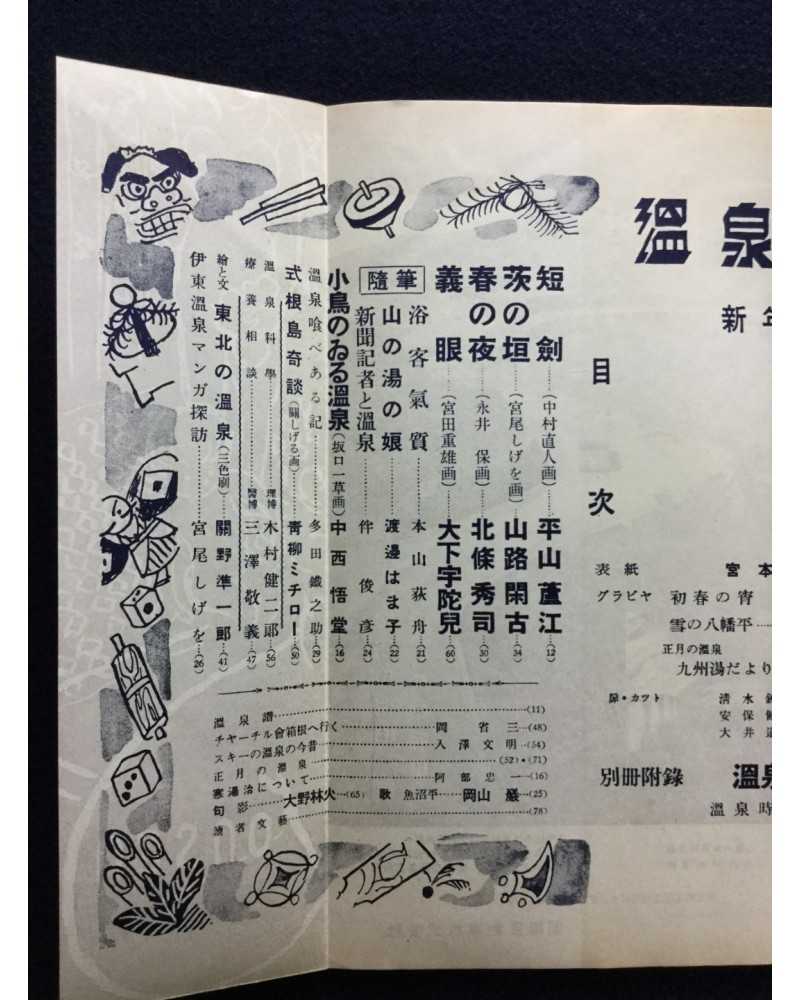 溫泉
新年
目次
表紙 宮本
グラビヤ 初春の宵
雪の八幡平
正月の溫泉
九州湯だより
扉・カツト 清水
安保
大井
別冊附錄 溫泉
溫泉時
短劍 (中村直人画) 平山蘆江 (12)
茨の垣 (宮尾しげを画) 山路閑古 (34)
春の夜 (永井保画) 北條秀司 (30)
義眼 (宮田重雄画) 大下宇陀兒 (60)
隨筆
浴客氣質 本山荻舟 (21)
山の湯の娘 渡邊はま子 (22)
新聞記者と溫泉 伴俊彦 (24)
小鳥のゐる溫泉 (坂口一草画) 中西悟堂 (16)
溫泉喰べある記 多田鐵之助 (29)
式根島奇談 (關しげる画) 青柳ミチロー (50)
溫泉科學 理博 木村健二郎 (56)
療養相談 醫博 三澤敬義 (47)
繪と文 東北の溫泉 (三色刷) 關野準一郎 (41)
伊東溫泉マンガ探訪 宮尾しげを (26)
溫泉譜 (11)
チヤーチル會箱根へ行く 岡省三 (48)
スキーの溫泉の今昔 入澤文明 (54)
正月の溫泉 (52)・(71)
寒湯治について 阿部忠一 (16)
旬影 大野林火 (65) 歌 魚沼平 岡山巖 (25)
讀者文藝 (78)